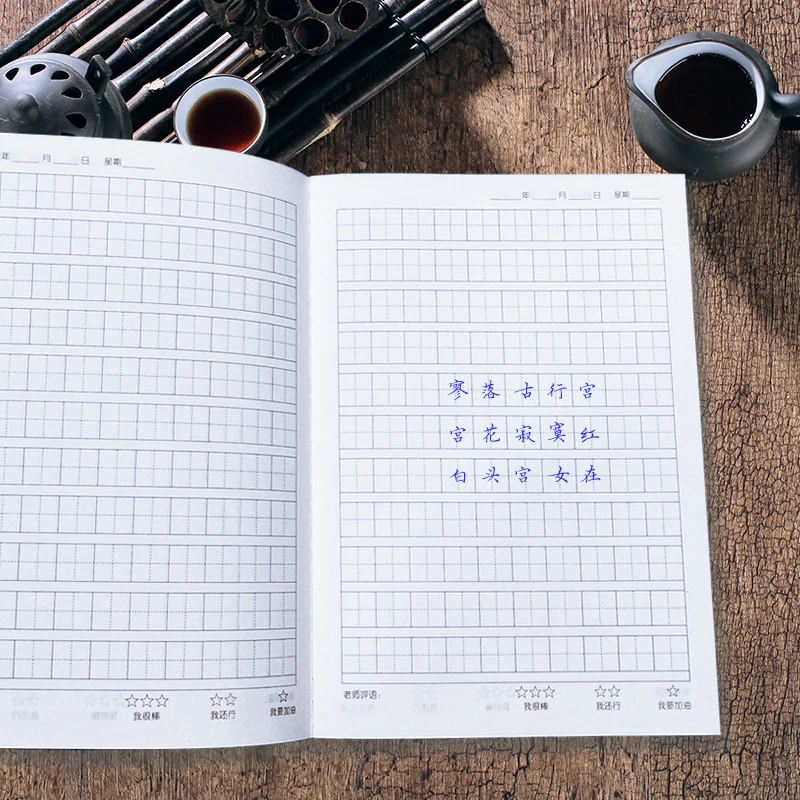 年 月 日 星期
☆☆☆ ☆☆ ☆
我很棒 我还行 我要加油
年 月 日 星期
寥落古行宫
宫花寂寞红
白头宫女在
老师评语: ☆☆☆ ☆☆ ☆
我很棒 我还行 我要加油